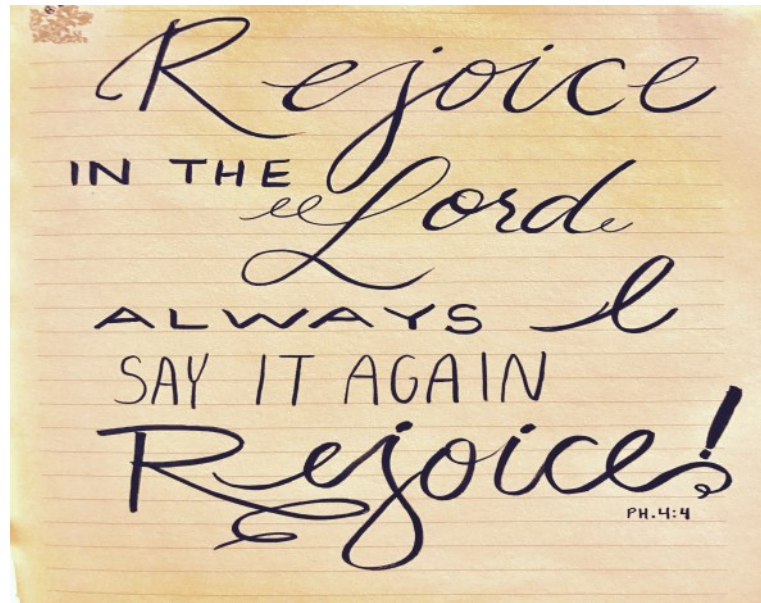 Rejoice
IN THE Lord
ALWAYS I
SAY IT AGAIN
Rejoice!
PH.4:4